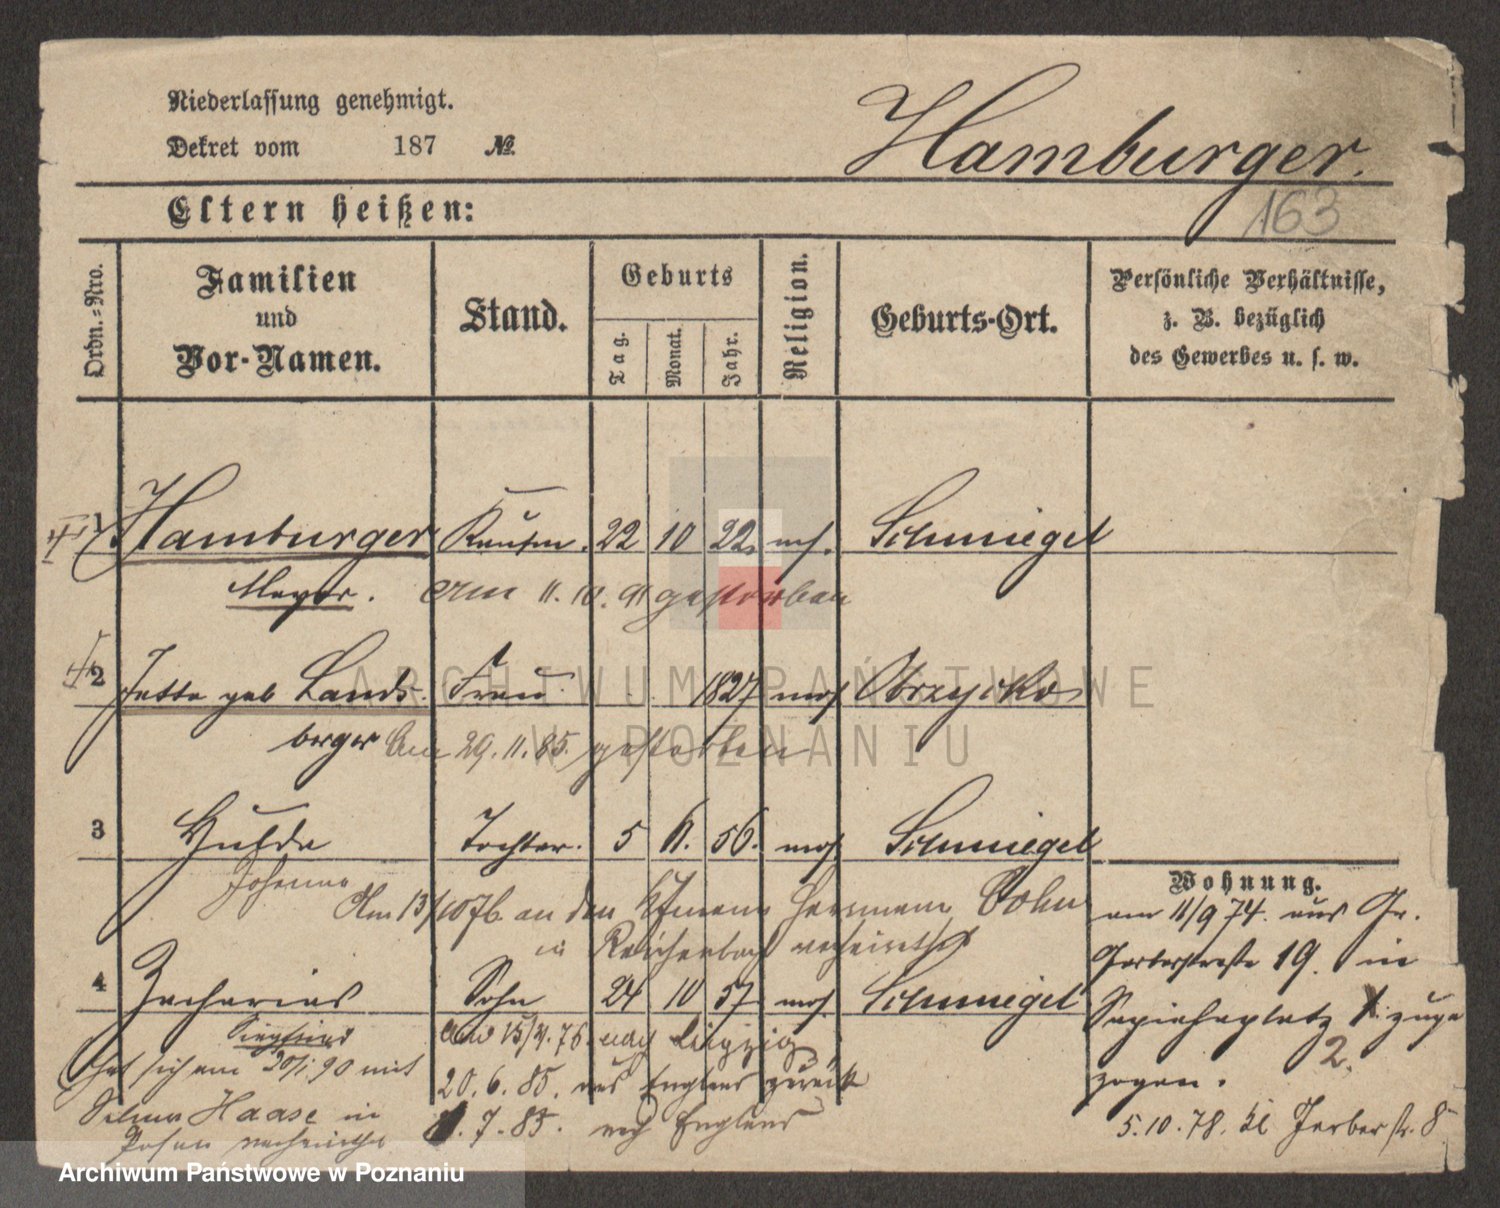 Niederlassung genehmigt.
Dekret vom 187 №.
Hamburger.
163
Eltern heißen:
Ordn.-Nro.
Familien
und
Vor-Namen.
Stand.
Geburts
Tag.
Monat.
Jahr.
Religion.
Geburts-Ort.
Persönliche Verhältnisse,
z. B. bezüglich
des Gewerbes u. s. w.
1 Hamburger Kaufm. 22 10 22 mos. Schmiegel
Meyer. am 11. 10. 91 gestorben
2 Jette geb Lands- Frau 1827 mos Obrzycko
berger Am 29. 11. 85. gestorben
3 Hulda Tochter. 5 11. 56. mos Schmiegel
Johanna
Am 13/10 76. an den Kfmann Herrmann Cohn
in Reichenbach verheirathet
4 Zacharias Sohn 24 10 57 mos Schmiegel
Siegfried
hat sich am 20/1 90 mit
Selma Haase in
Posen verheirathet
Am 15/4. 76. nach Leipzig
20. 6. 85. aus England zurück
8. 7. 85. nach England
Wohnung.
am 11/9 74. aus Gr.
Gerberstraße 19. in
Sapiehaplatz 1. zuge
2.
zogen.
5. 10. 78. Kl Gerberstr. 8
ARCHIWUM PAŃSTWOWE
W POZNANIU
Archiwum Państwowe w Poznaniu